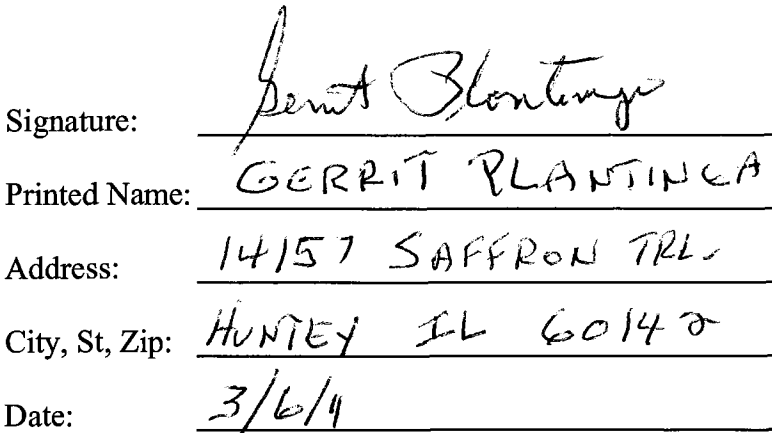 Signature: Gerrit Plantinga
Printed Name: GERRIT PLANTINGA
Address: 14157 SAFFRON TRL.
City, St, Zip: HUNTEY IL 60142
Date: 3/6/11